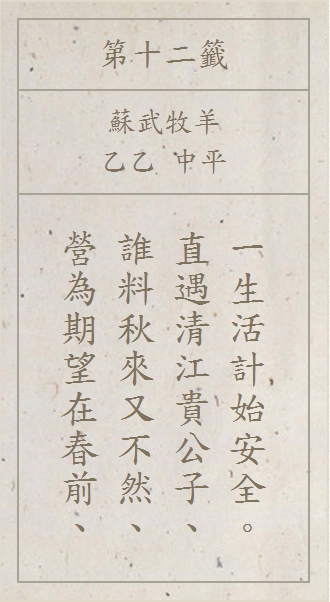 第十二籤
蘇武牧羊
乙乙 中平
營為期望在春前、
誰料秋來又不然、
直遇清江貴公子、
一生活計始安全。